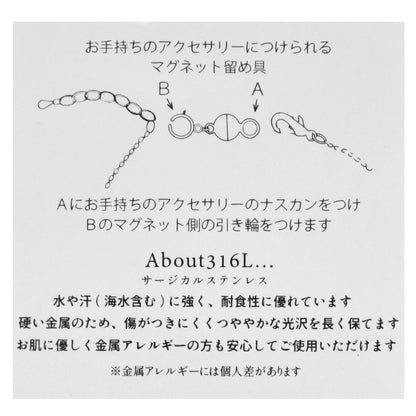 お手持ちのアクセサリーにつけられる
マグネット留め具
B A
Aにお手持ちのアクセサリーのナスカンをつけ
Bのマグネット側の引き輪をつけます
About316L...
サージカルステンレス
水や汗(海水含む)に強く、耐食性に優れています
硬い金属のため、傷がつきにくくつややかな光沢を長く保てます
お肌に優しく金属アレルギーの方も安心してご使用いただけます
※金属アレルギーには個人差があります